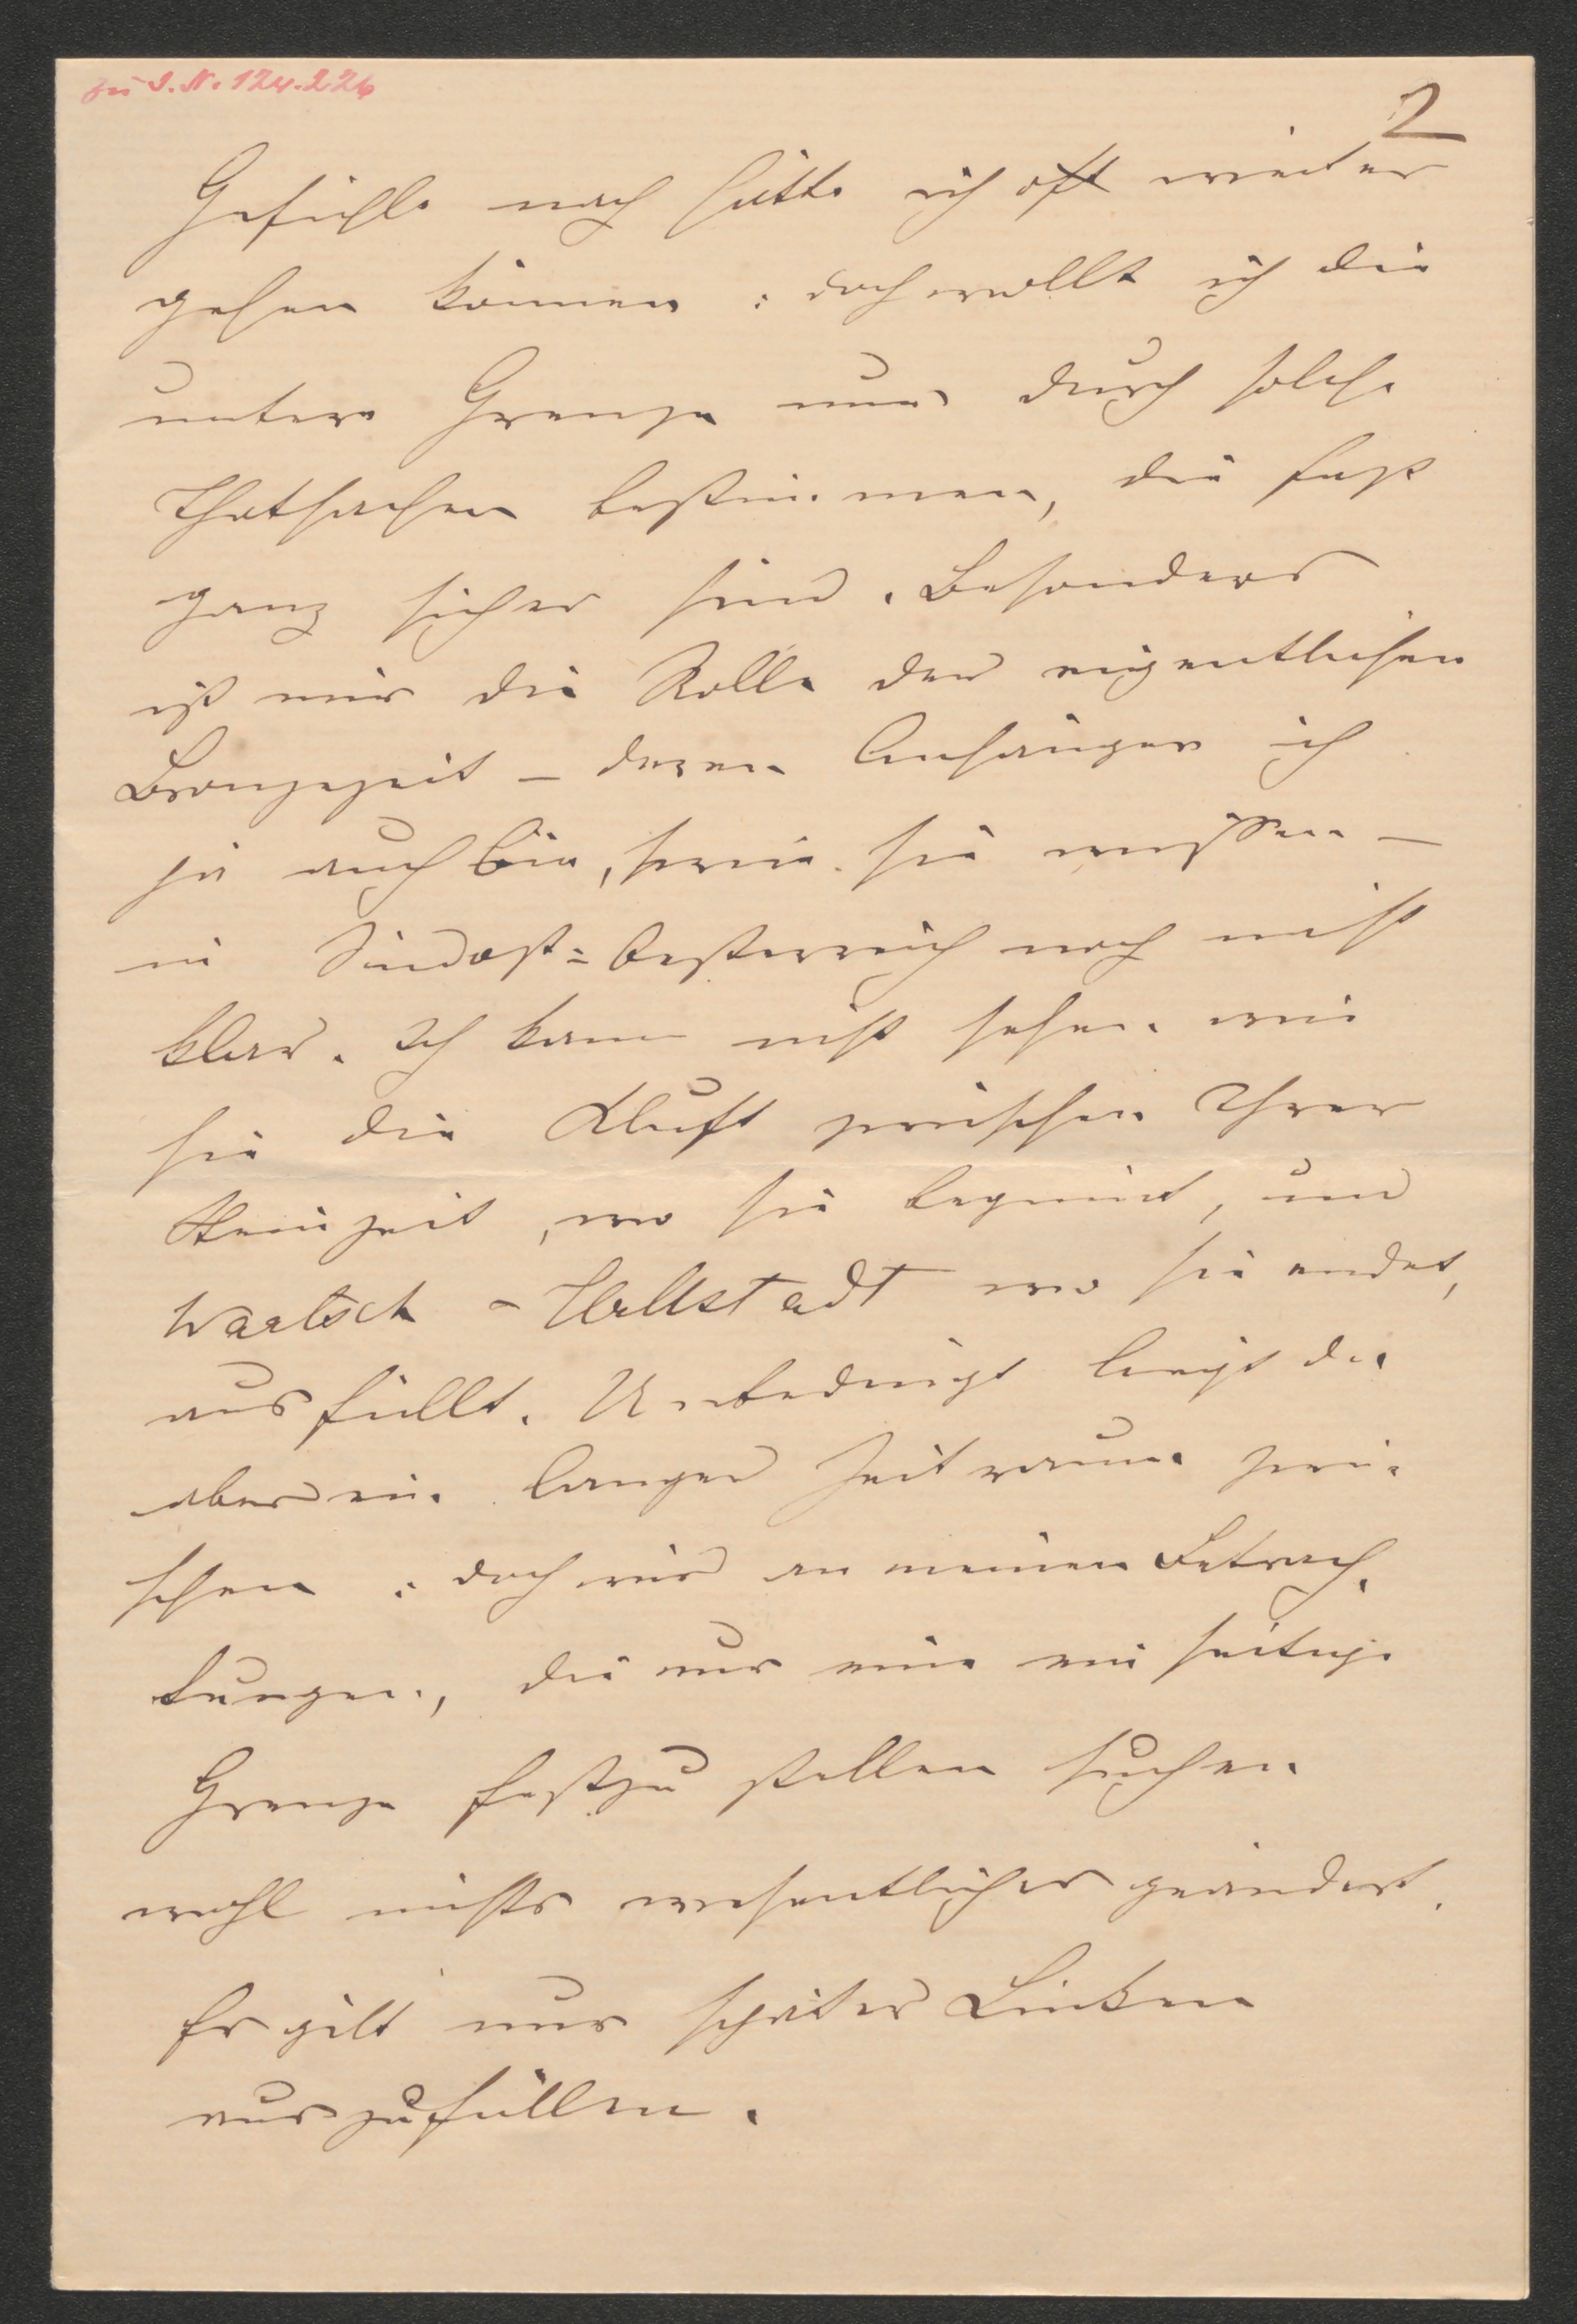 zu I.N. 124.226
2
Gefühle nach hätte ich oft weiter
gehen können: doch wollt ich die
untere Grenze nur durch solche
Thatsachen bestimmen, die fast
ganz sicher sind. Besonders
ist mir die Rolle der eigentlichen
Bronzezeit – deren Anhänger ich
ja auch bin, wie Sie wissen –
in Südost=Oesterreich noch nicht
klar. Ich kann nicht sehen wie
sie die Kluft zwischen Ihrer
Steinzeit, wo sie beginnt, und
Waatsch – Hallstadt wo sie endet,
ausfüllt. Unbedingt liegt da
aber ein langer Zeitraum zwi-
schen: doch wird an meinen Betrach-
tungen, die nur eine einseitige
Grenze festzustellen suchen
wohl nichts wesentliches geändert.
Es gilt nur später Lücken
auszufüllen.